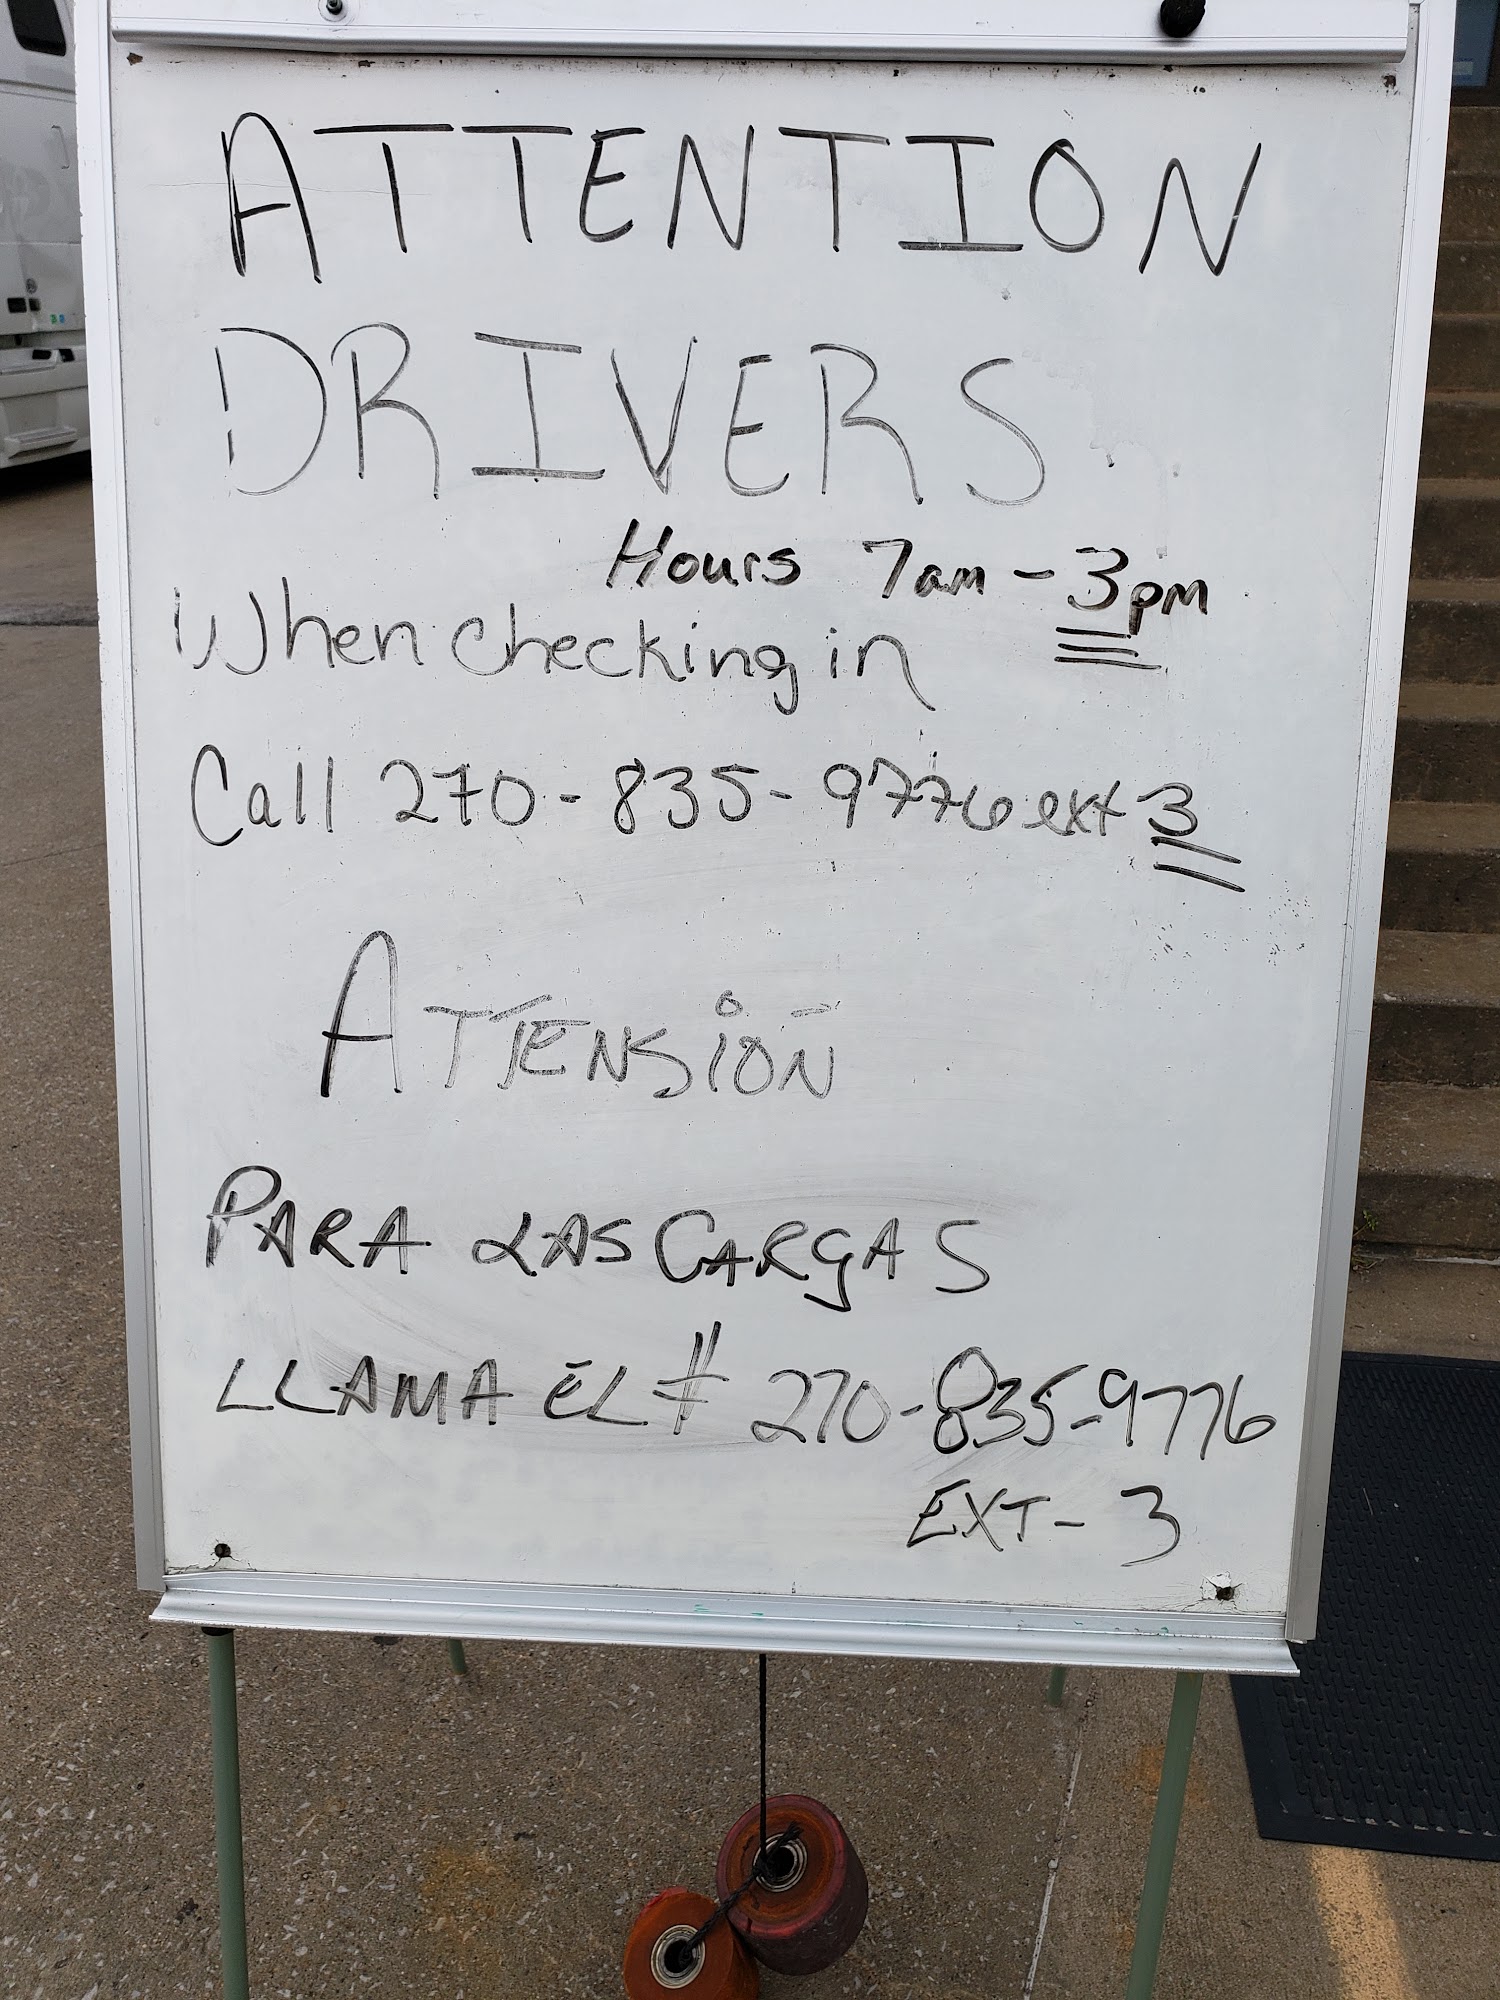 ATTENTION
DRIVERS
Hours 7am - 3pm
When checking in
Call 270-835-9776 ext 3
ATTENSiON
PARA LAS CARGAS
LLAMA EL # 270-835-9776
EXT- 3